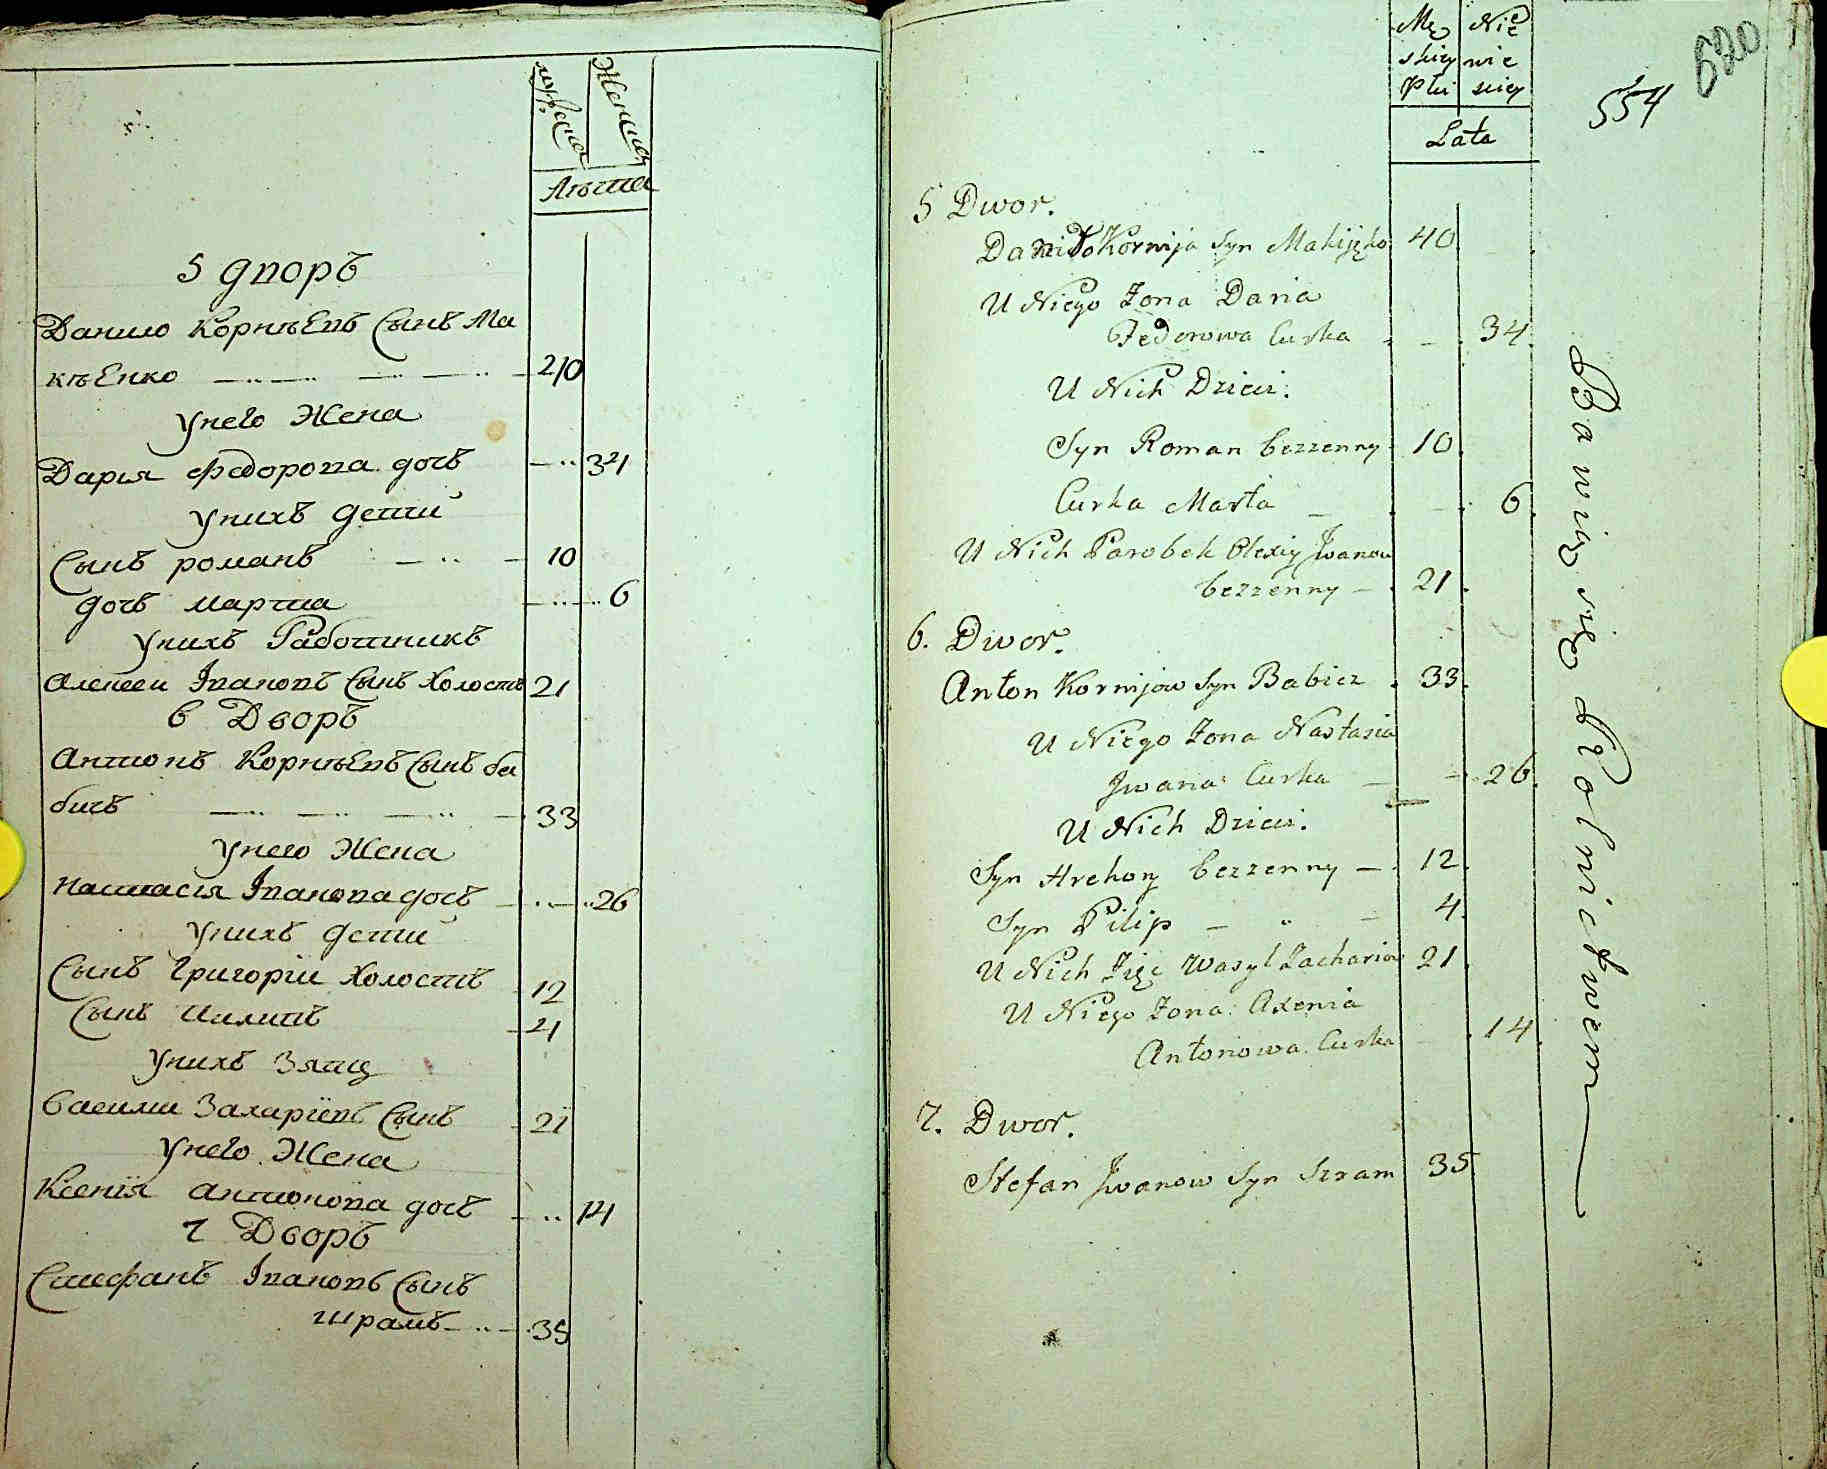 мужеска Женска
Лѣта
5 дворъ
Данило Корнѣевъ Сынъ Ма
кѣенко 40
Унего Жена
Дарія Федорова дочь 34
Унихъ дети
Сынъ романъ 10
дочь марта 6
Унихъ Работникъ
Алексеи Івановъ Сынъ Холостъ 21
6 Дворъ
Антонъ Корнѣевъ Сынъ ба
бичъ 33
Унего Жена
Настасія Іванова дочь 26
Унихъ дети
Сынъ Григоріи Холостъ 12
Сынъ Пилипъ 4
Унихъ Зять
Василии Захаріевъ Сынъ 21
Унего Жена
Ксенія Антонова дочь 14
7 Дворъ
Стефанъ Івановъ Сынъ
шрамъ 35
620
554
Mę Nie
skiey wie
Płci sciey
Lata
5 Dwor.
Daniło Kornija Syn Makijęko 40
U Niego Zona Daria
Fedorowa Curka 34
U Nich Dzieci.
Syn Roman bezzenny 10
Curka Marta 6
U Nich Parobek Olexiy Jwanow
bezzenny 21
6. Dwor.
Anton Kornijow Syn Babicz 33
U Niego Zona Nastasia
Jwana Curka 26
U Nich Dzieci.
Syn Hrehory bezzenny 12
Syn Pilip 4
U Nich Zięc Wasyl Zachariow 21
U Niego Zona Axenia
Antonowa Curka 14
7. Dwor.
Stefan Jwanow Syn Szram 35
Bawią się Rolnictwem